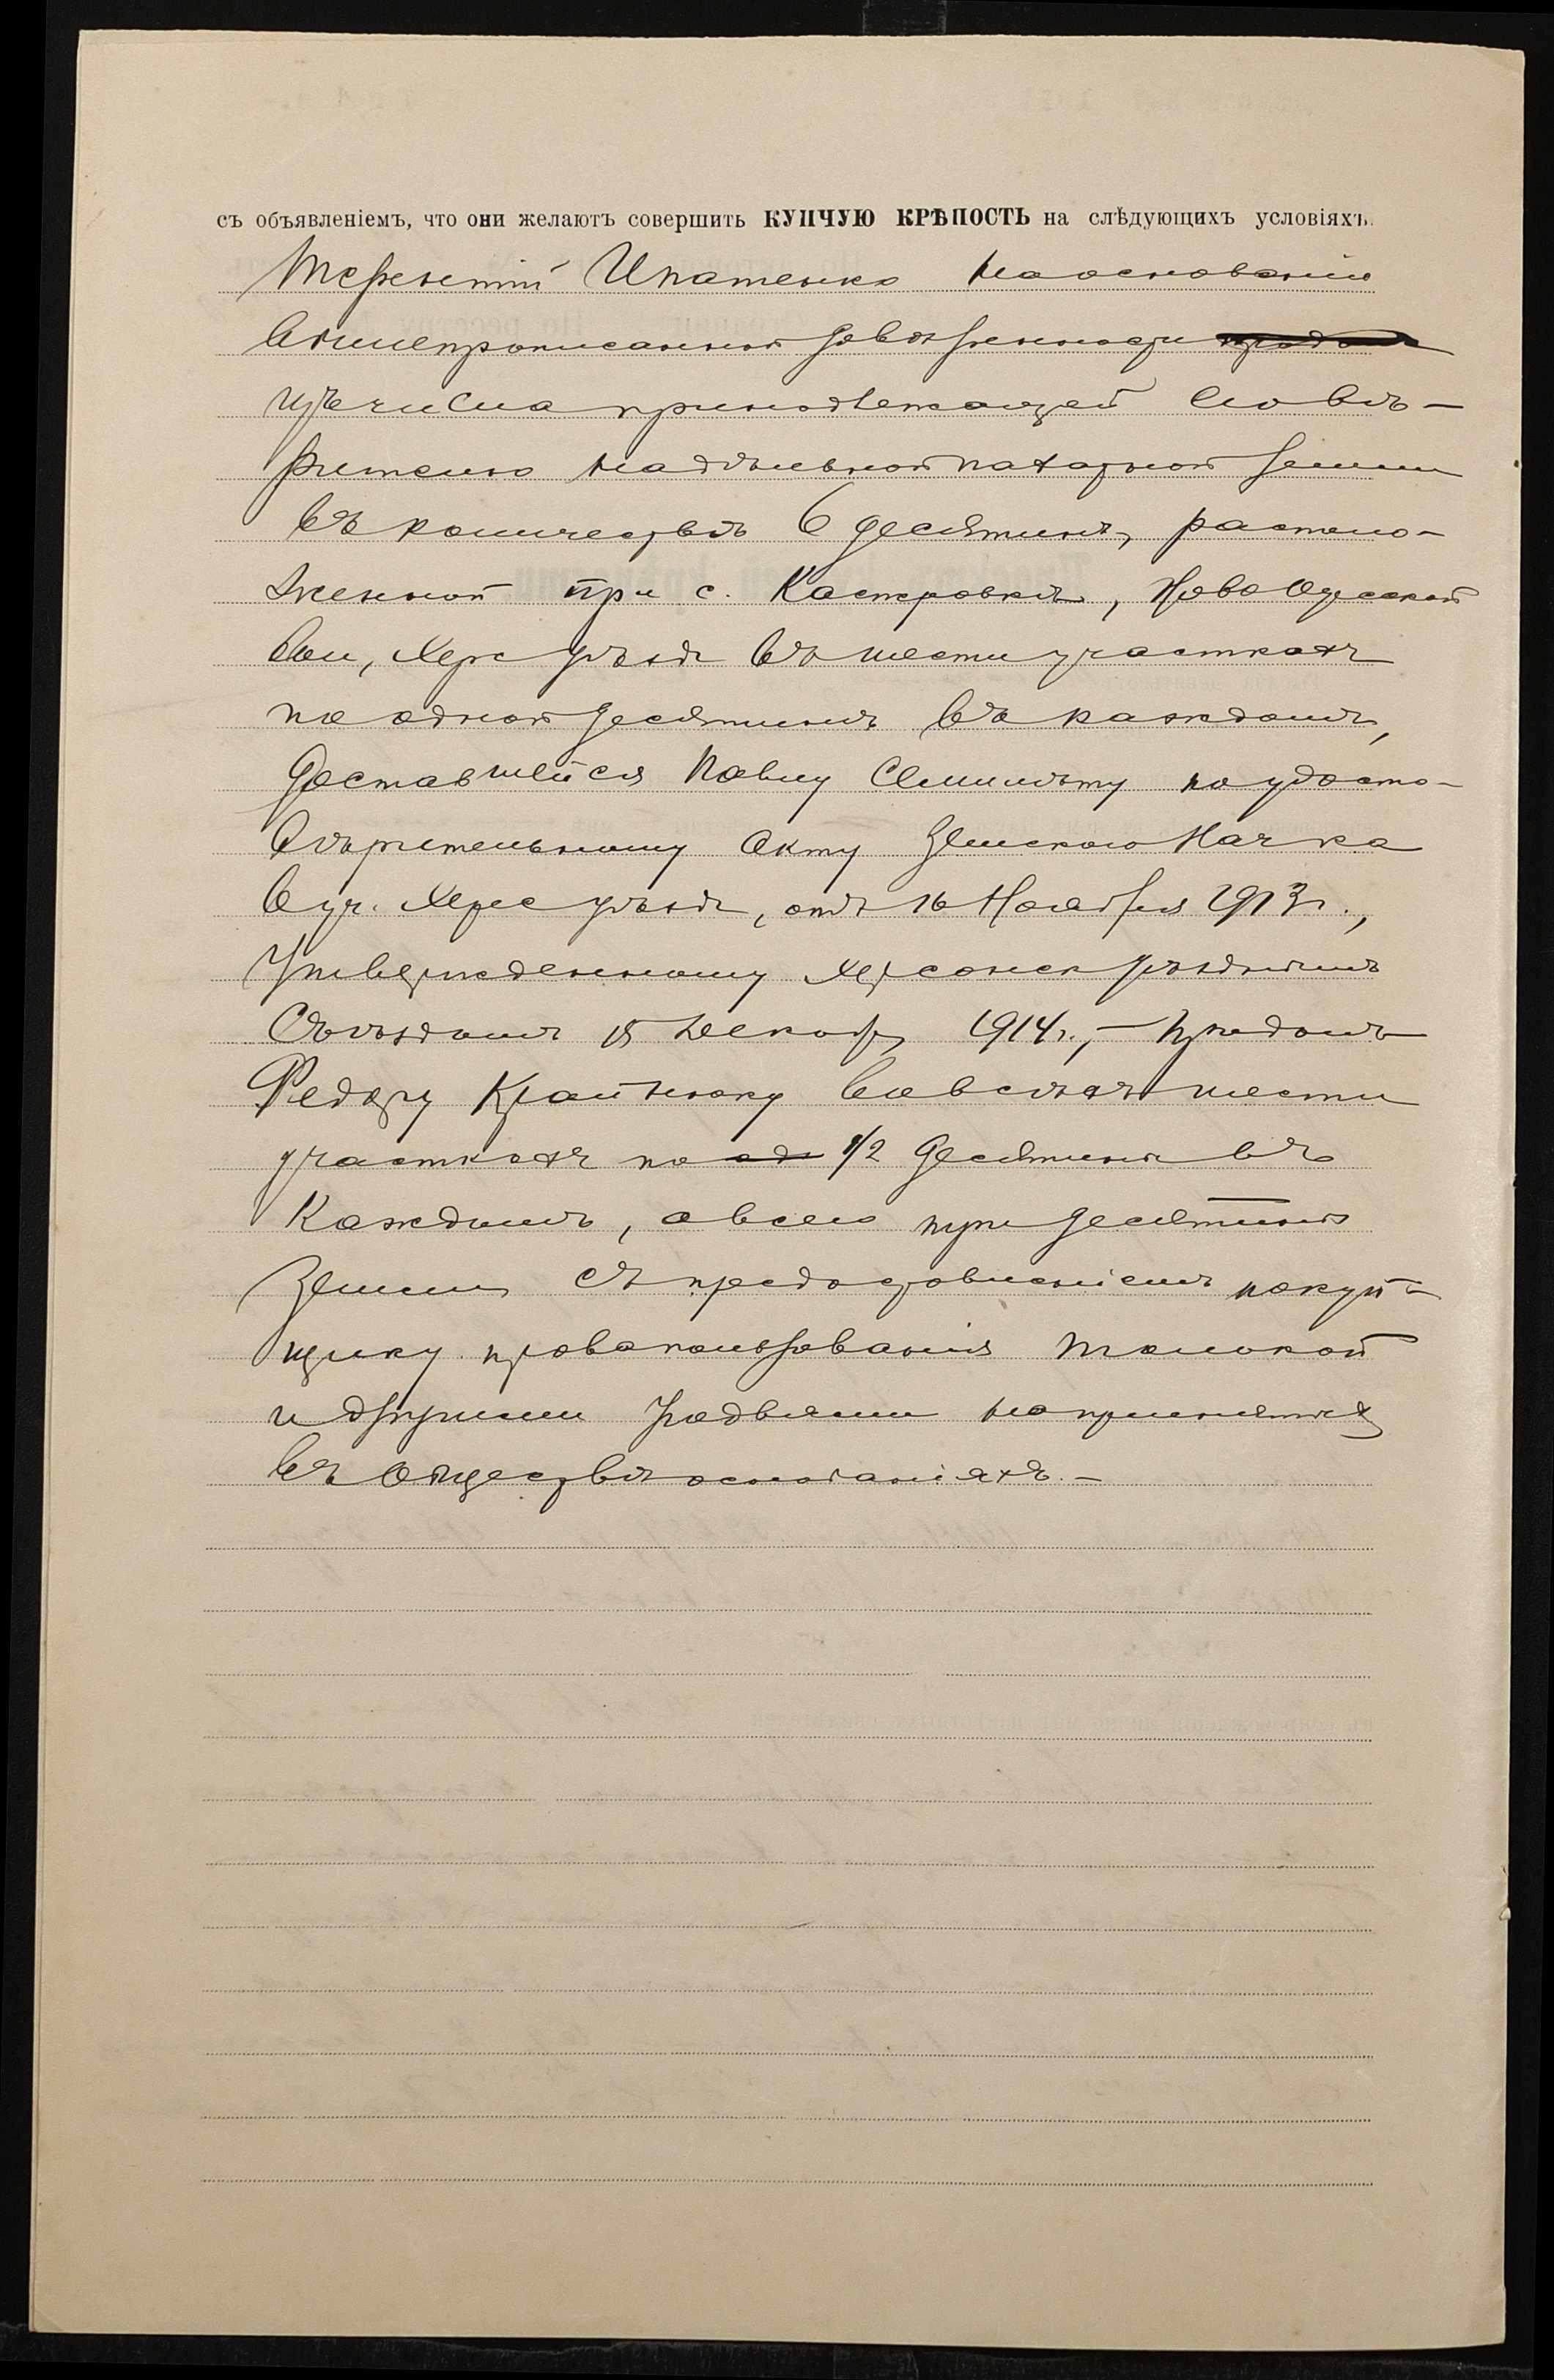 съ объявленіемъ, что они желаютъ совершить КУПЧУЮ КРѢПОСТЬ на слѣдующихъ условіяхъ.
Терентій Ипатенко на основаніи
вышепрописанной довѣренности
изъ числа принадлежащей его довѣ-
рителю надѣльной пахатной земли
въ количествѣ 6 десятинъ, располо-
женной при с. Касперовкѣ, Ново Одесской
вол, Херс уѣзда въ шести участкахъ
по одной десятинѣ въ каждомъ,
доставшейся Павлу по удосто-
вѣрительному акту Земского Нач ка
6 уч. Херс уѣзда, отъ 16 Ноября 1913 г.,
утвержденному Херсонск уѣзднымъ
Съѣздомъ 15 Декабр 1914 г., – продалъ
Федору Крайнюку во всѣхъ шести
участкахъ по од 1/2 десятины въ
каждомъ, а всего три десятины
земли съ предоставленіемъ покуп-
щику права пользованія толокой
и другими угодьями на принятыхъ
въ обществѣ основаніяхъ. –